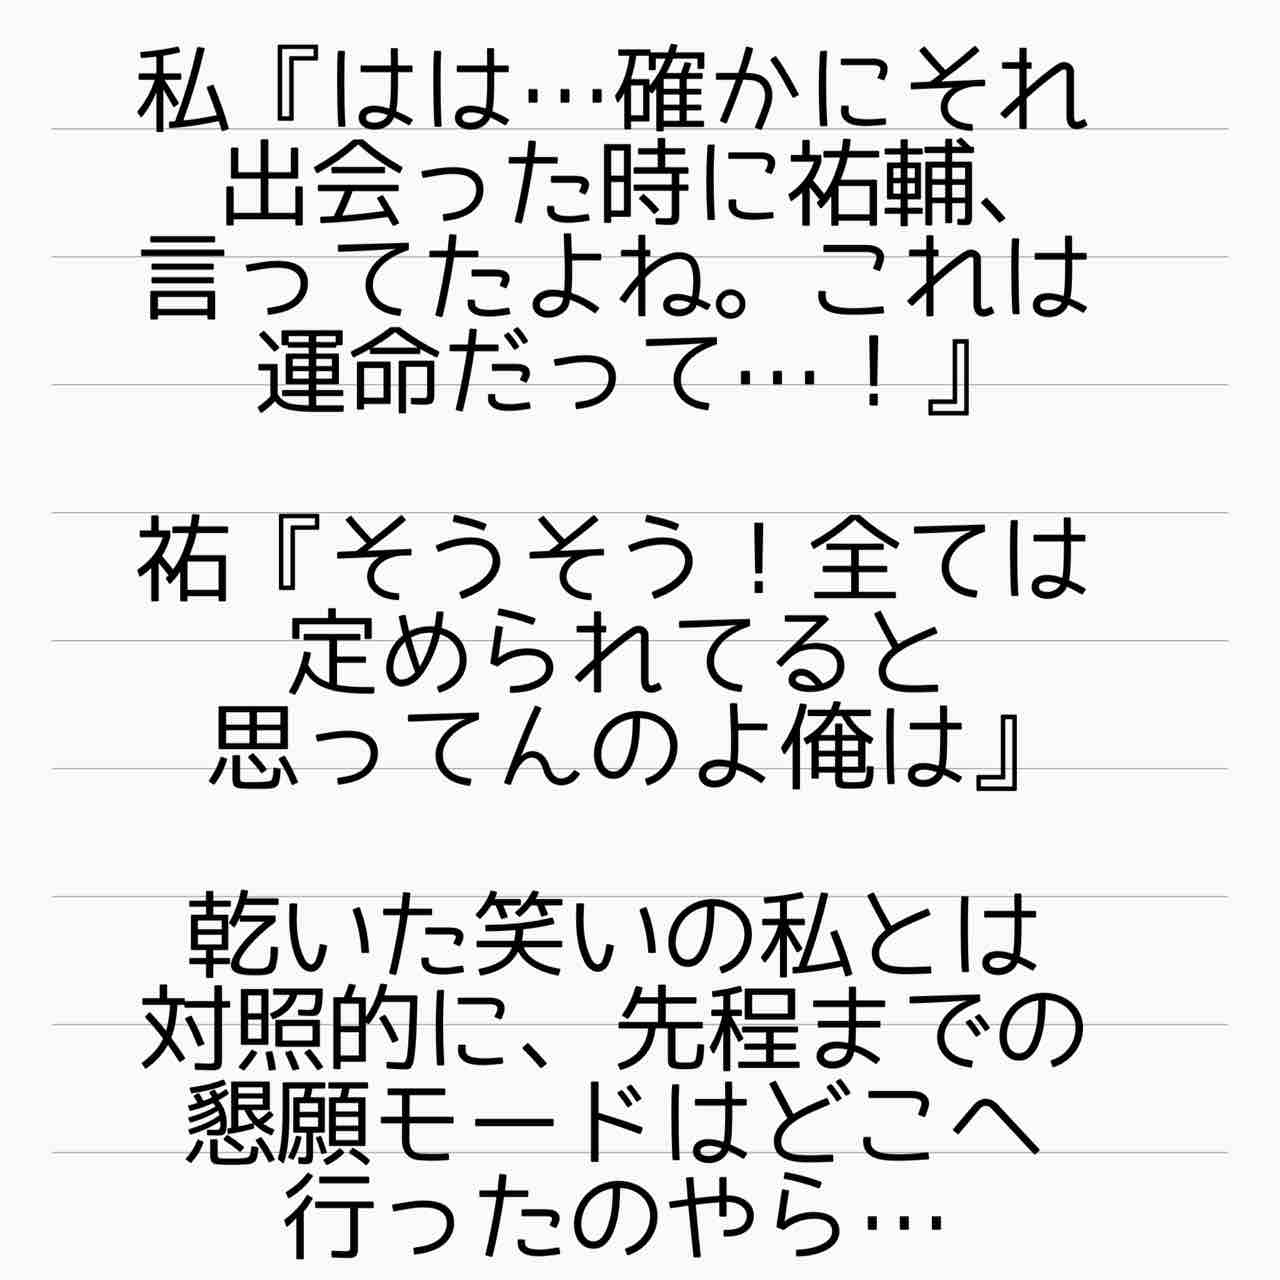 私『はは…確かにそれ
出会った時に祐輔、
言ってたよね。これは
運命だって…！』
祐『そうそう！全ては
定められてると
思ってんのよ俺は』
乾いた笑いの私とは
対照的に、先程までの
懇願モードはどこへ
行ったのやら…